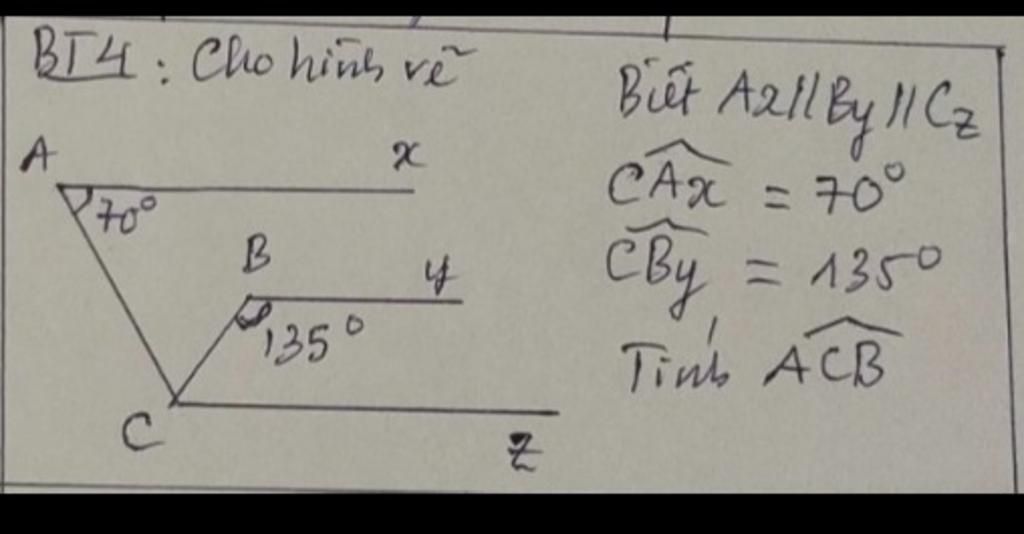 BT4: Cho hình vẽ
A x
70°
B y
135°
C z
Biết Ax//By//Cz
CAx = 70°
CBy = 135°
Tính ACB